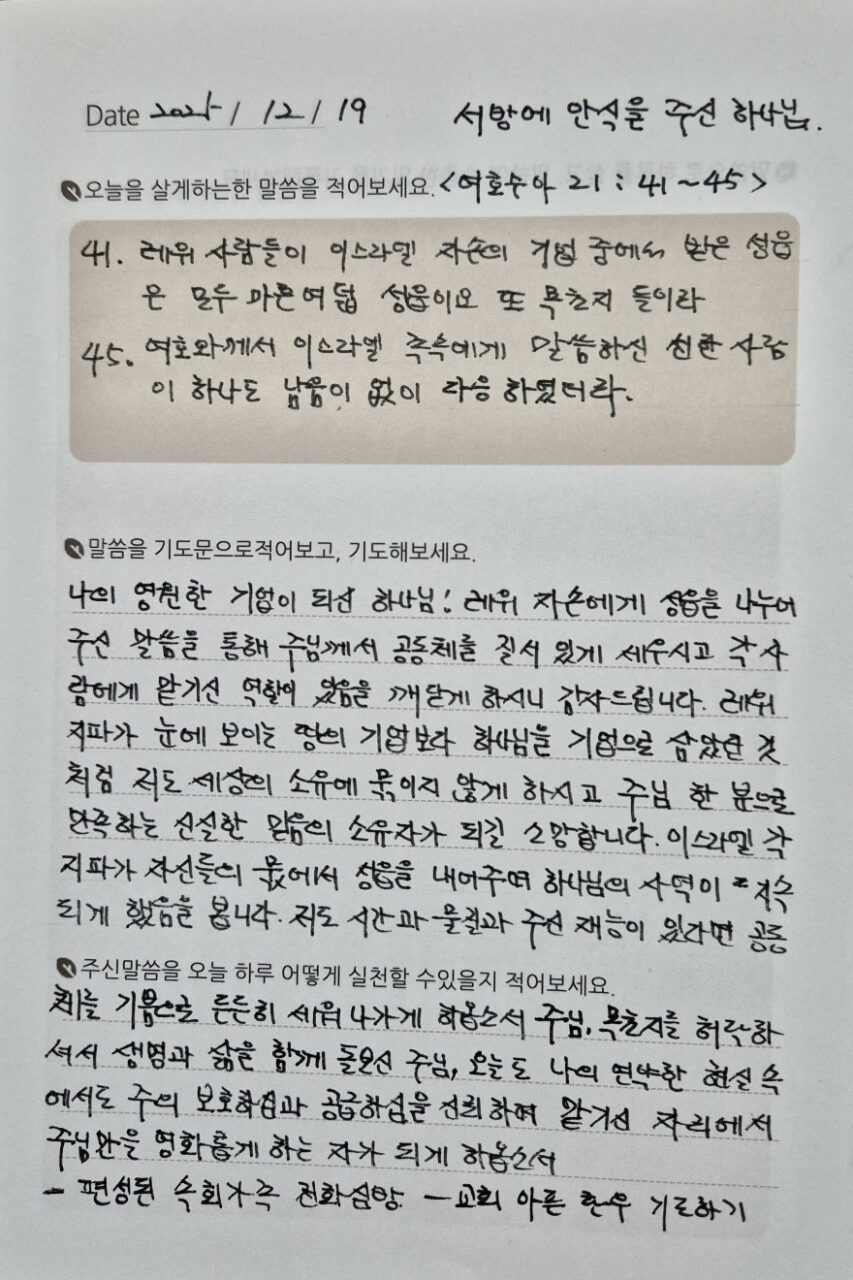 Date 2025 / 12 / 19 서방에 안식을 주신 하나님.
오늘을 살게하는한 말씀을 적어보세요. <여호수아 21 : 41 ~ 45>
41. 레위 사람들이 이스라엘 자손의 기업 중에서 받은 성읍
은 모두 마흔여덟 성읍이오 또 목초지 들이라
45. 여호와께서 이스라엘 족속에게 말씀하신 선한 사람
이 하나도 남음이 없이 다응 하였더라.
말씀을 기도문으로적어보고, 기도해보세요.
나의 영원한 기업이 되신 하나님! 레위 자손에게 성읍을 나누어
주신 말씀을 통해 주님께서 공동체를 질서 있게 세우시고 각 사
람에게 맡기신 역할이 있음을 깨닫게 하시니 감사드립니다. 레위
지파가 눈에 보이는 땅의 기업보다 하나님을 기업으로 삼았던 것
처럼 저도 세상의 소유에 묶이지 않게 하시고 주님 한 분으로
만족하는 신실한 믿음의 소유자가 되길 소망합니다. 이스라엘 각
지파가 자신들의 몫에서 성읍을 내어주며 하나님의 사역이 지속
되게 했음을 봅니다. 저도 시간과 물질과 주신 재능이 있다면 공동
주신말씀을 오늘 하루 어떻게 실천할 수있을지 적어보세요.
체를 기쁨으로 든든히 세워 나가게 하옵소서 주님, 목초지를 허락하
셔서 생명과 삶을 함께 돌보신 주님, 오늘도 나의 연약한 현실 속
에서도 주의 보호하심과 공급하심을 신뢰하며 맡기신 자리에서
주님만을 영화롭게 하는 자가 되게 하옵소서
- 편성된 속회가족 전화심방. - 교회 아픈 환우 기도하기